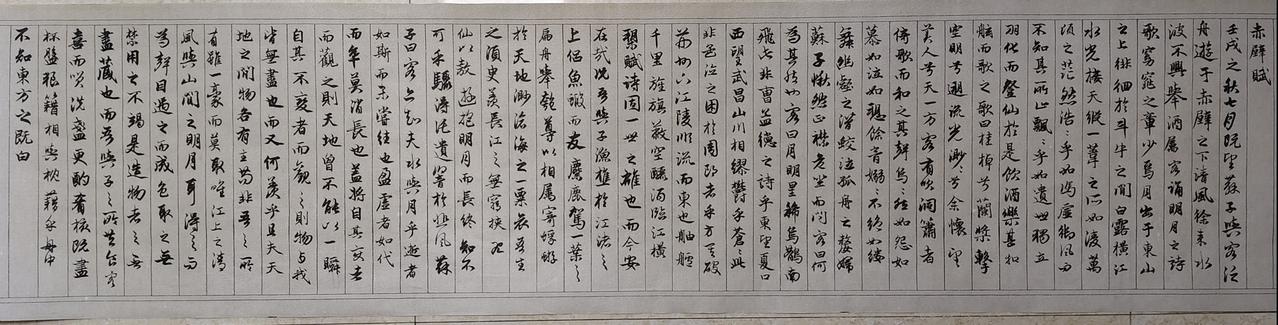 赤壁賦
壬戌之秋七月既望蘇子與客泛
舟遊于赤壁之下清風徐来水
波不興舉酒屬客誦明月之詩
歌窈窕之章少焉月出于東山
之上徘徊於斗牛之間白露横江
水光接天縱一葦之所如凌萬
頃之茫然浩〻乎如馮虚御風而
不知其所止飄〻乎如遺世獨立
羽化而登仙於是飲酒樂甚扣
舷而歌之歌曰桂棹兮蘭槳擊
空明兮遡流光渺〻兮余懷望
美人兮天一方客有吹洞簫者
倚歌而和之其聲烏〻然如怨如
慕如泣如訴餘音嫋〻不絶如縷
舞幽壑之潜蛟泣孤舟之嫠婦
蘇子愀然正襟危坐而問客曰何
為其然也客曰月明星稀烏鵲南
飛此非曹孟德之詩乎東望夏口
西望武昌山川相繆鬱乎蒼〻此
非孟德之困於周郎者乎方其破
荆州下江陵順流而東也舳艫
千里旌旗蔽空釃酒臨江横
槊賦詩固一世之雄也而今安
在哉况吾與子漁樵於江渚之
上侣魚蝦而友麋鹿駕一葉之
扁舟舉匏尊以相屬寄蜉蝣
於天地渺滄海之一粟哀吾生
之須臾羨長江之無窮挟飛
仙以敖遊抱明月而長終知不
可乎驟得托遺響於悲風蘇
子曰客亦知夫水與月乎逝者
如斯而未嘗往也盈虚者如代
而卒莫消長也蓋將自其變者
而觀之則天地曾不能以一瞬
自其不變者而觀之則物與我
皆無盡也而又何羨乎且夫天
地之間物各有主苟非吾之所
有雖一毫而莫取唯江上之清
風與山間之明月耳得之而
為聲目遇之而成色取之無
禁用之不竭是造物者之無
盡藏也而吾與子之所共食客
喜而笑洗盞更酌肴核既盡
杯盤狼籍相與枕藉乎舟中
不知東方之既白